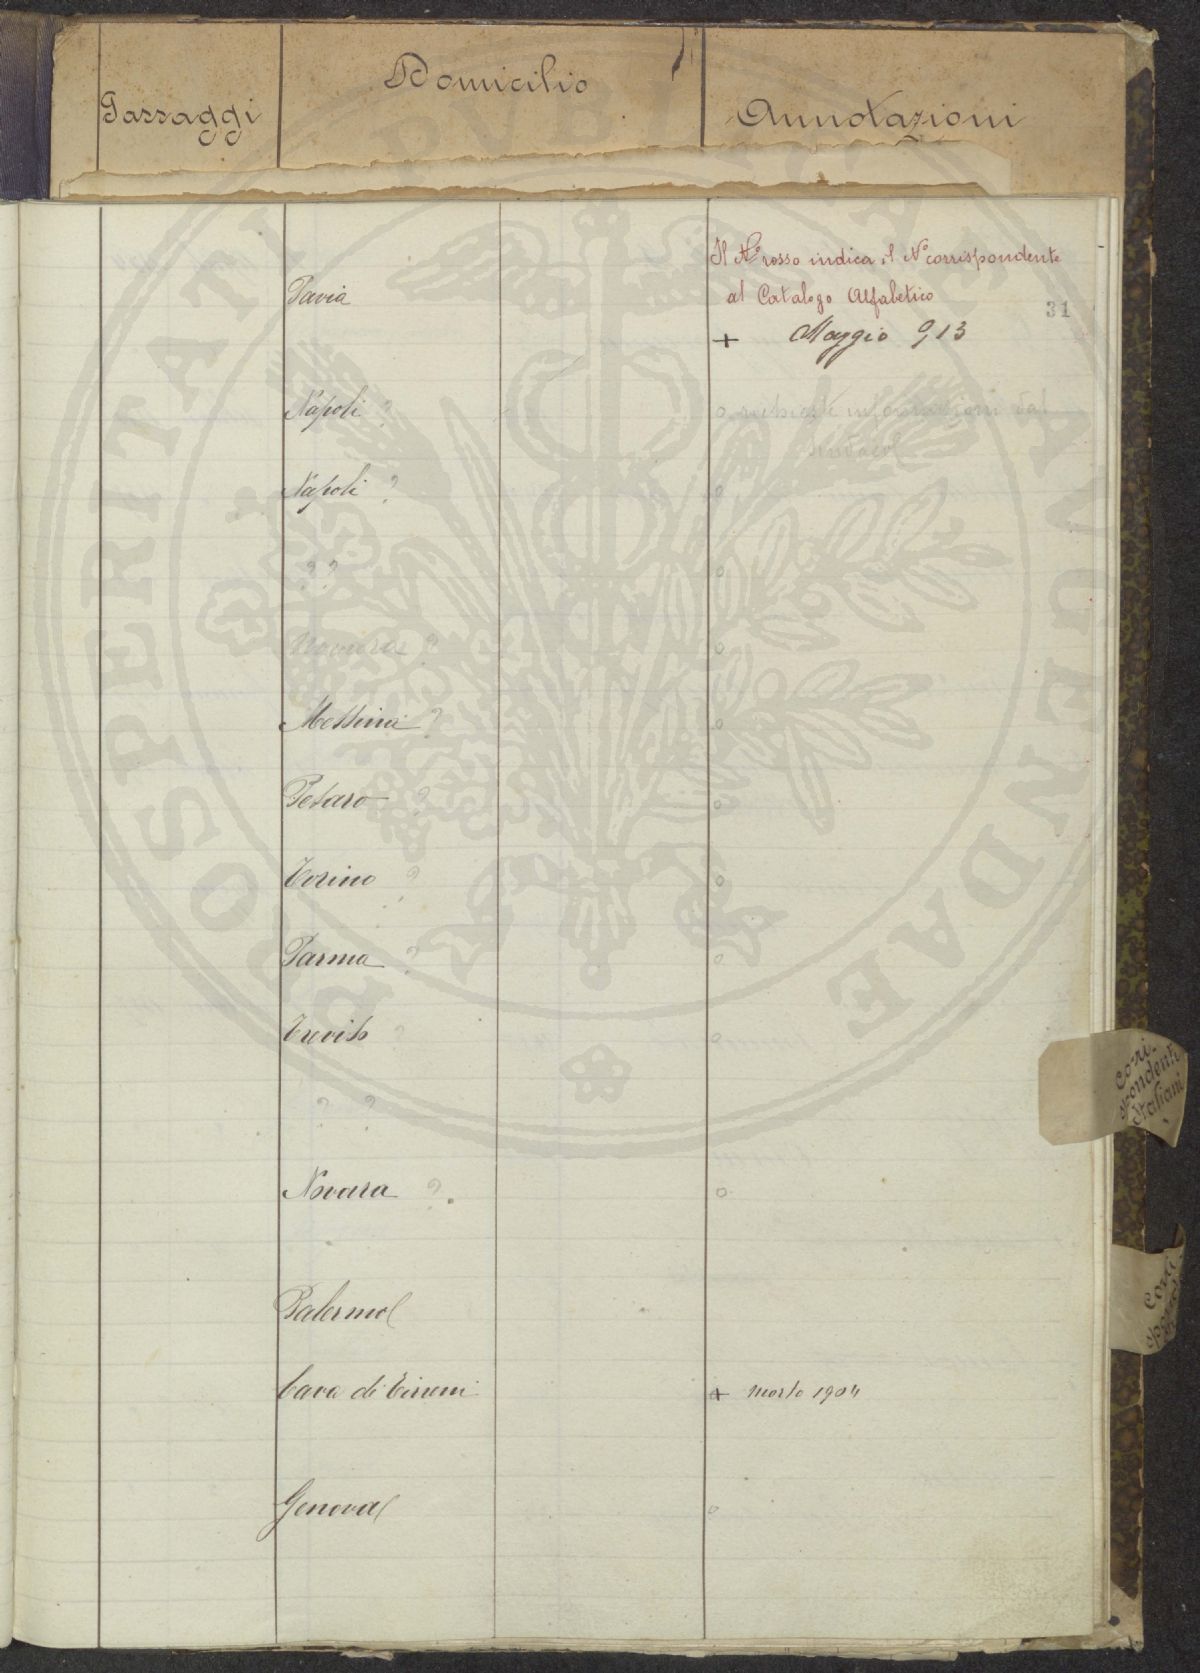 Passaggi
Domicilio
Annotazioni
Il No rosso indica il No corrispondente
al Catalogo Alfabetico
31
Pavia
+ Maggio 913
Napoli ?
o richieste informazioni dal
sindaco
Napoli ?
o
? ?
o
Novara ?
o
Messina ?
o
Pesaro ?
o
Torino ?
o
Parma ?
o
Treviso ?
o
? ?
Novara ?
o
Palermo
Cava di Tirreni
+ morto 1904
Genova
o
Corri-
spondenti
italiani
Corri
spon
PROSPERITATI PUBLICAE AUGENDAE